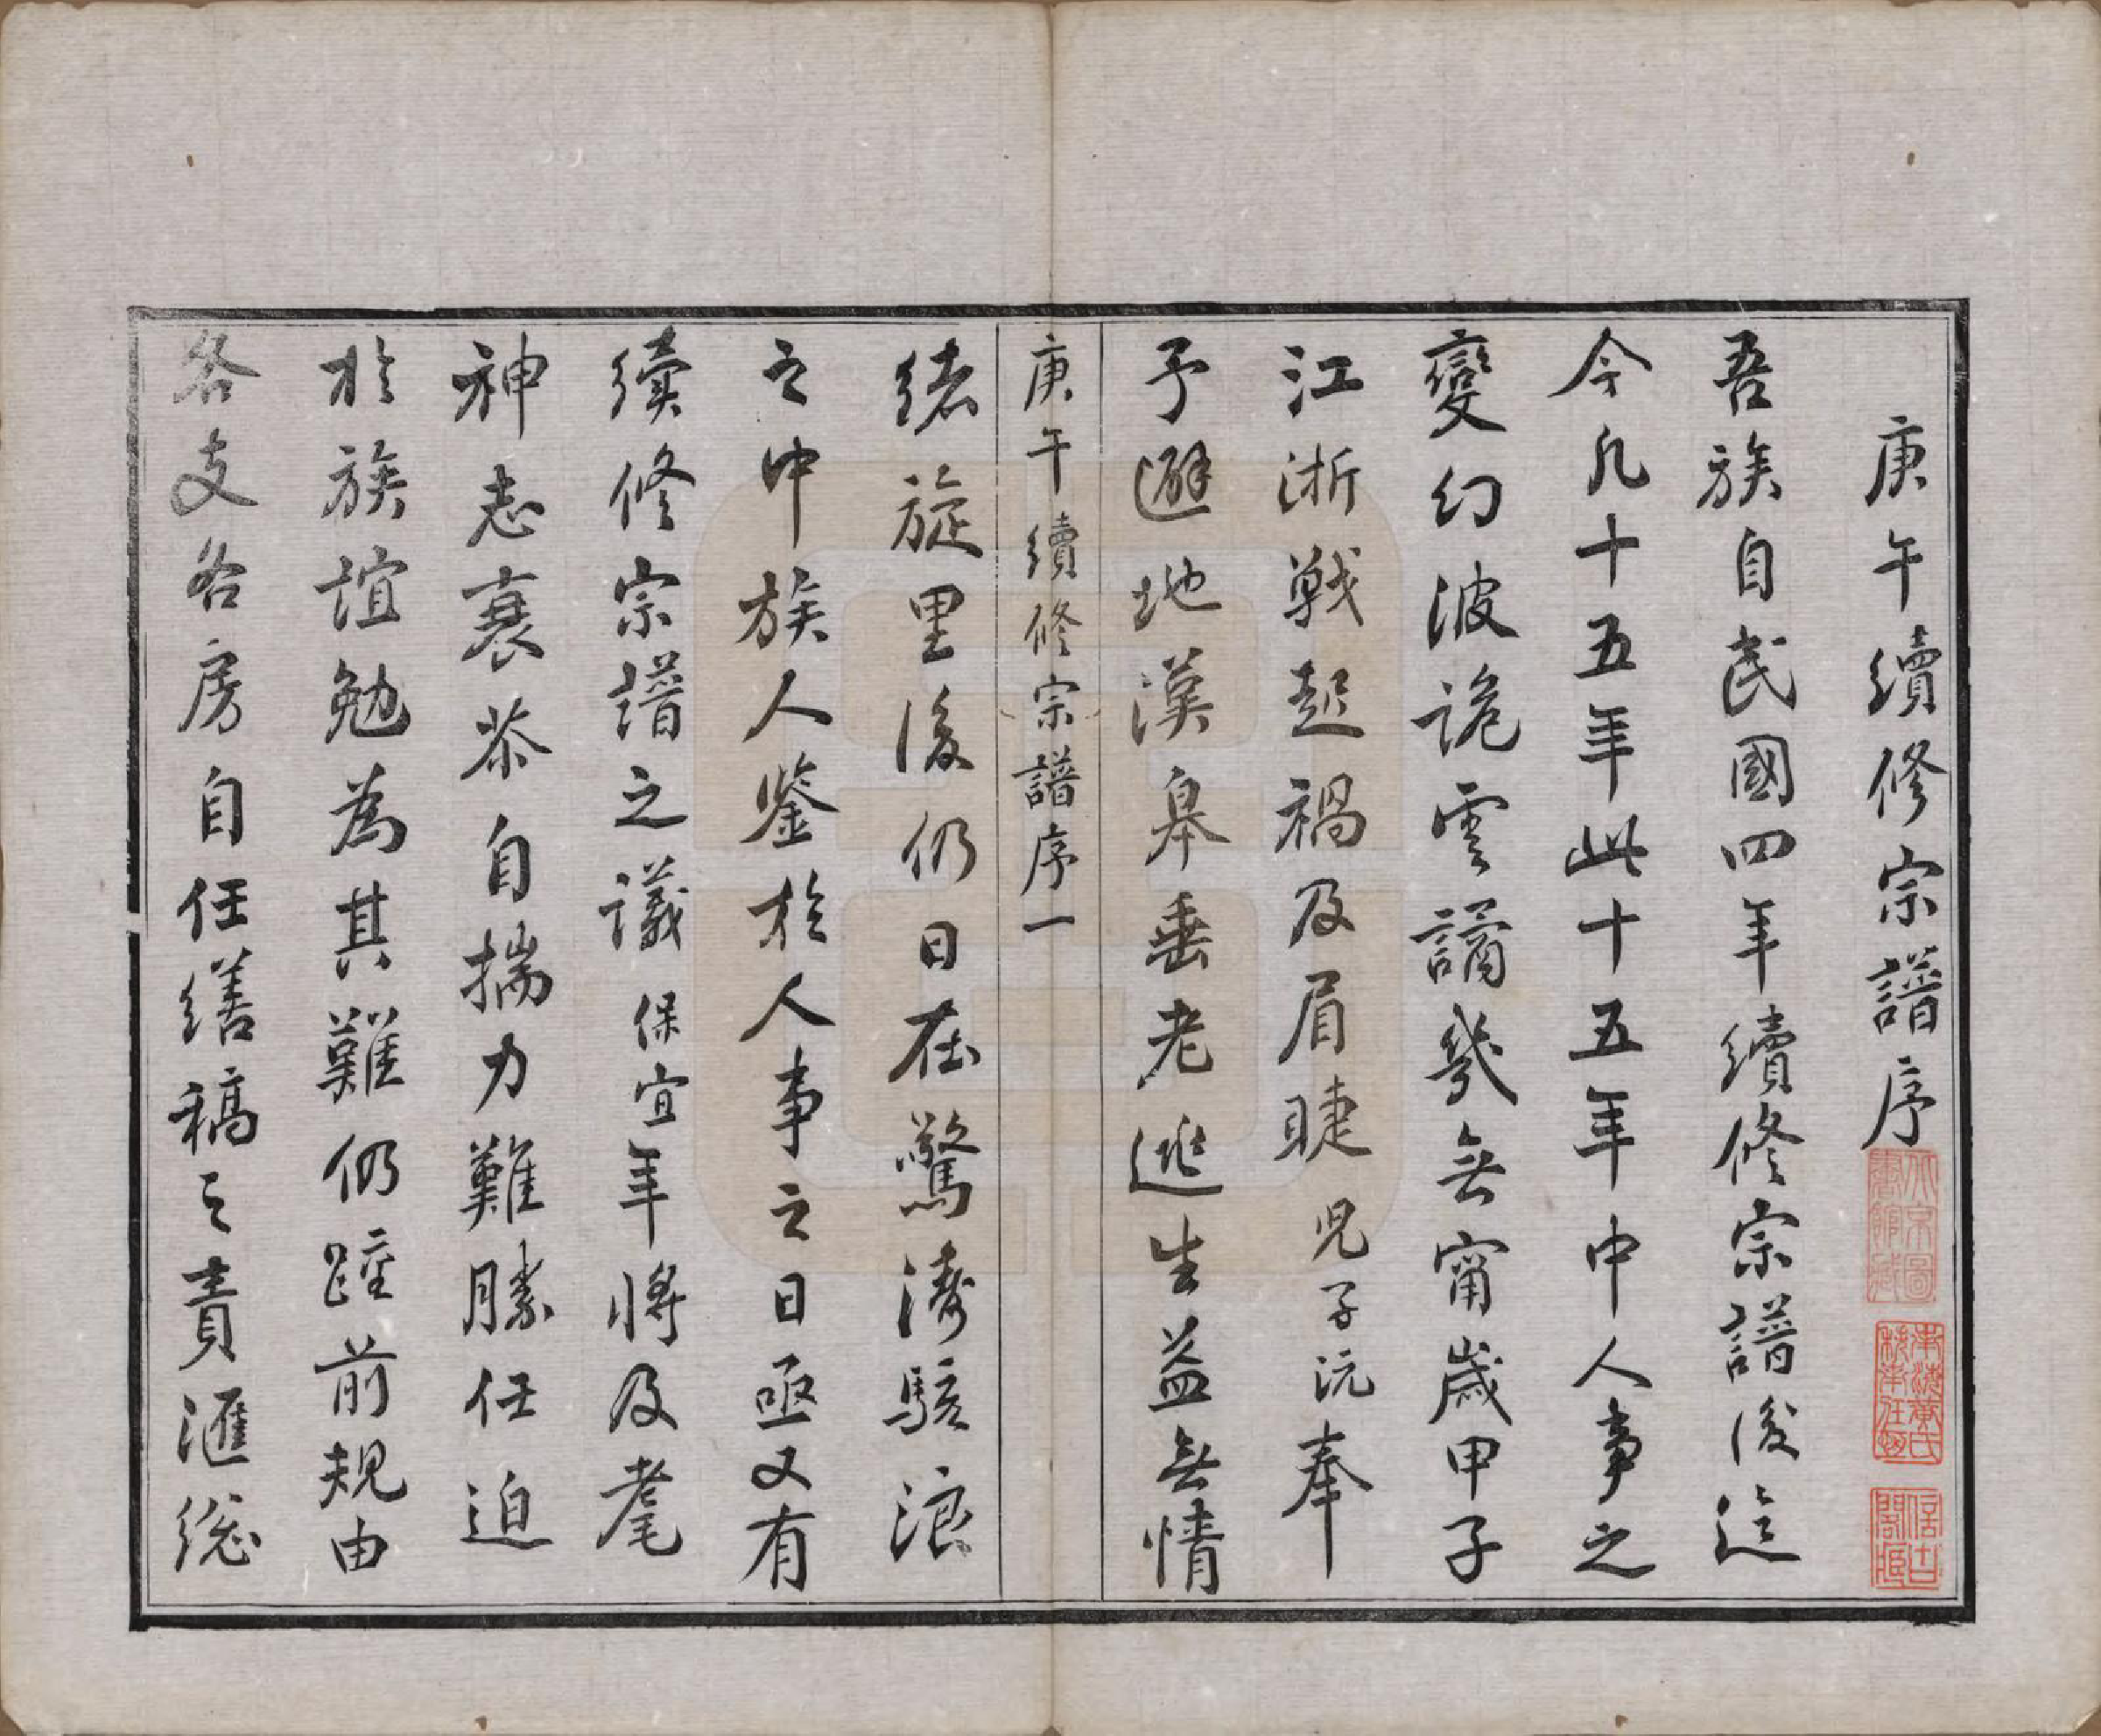 庚午續修宗譜序
吾族自民國四年續修宗譜後迄
今凡十五年此十五年中人事之
變幻波詭雲譎幾無甯歲甲子
江浙戰起禍及眉睫兒子沅奉
予避地漢皋垂老逃生益無情
庚午續修宗譜序一
緒旋里後仍日在驚濤駭浪
之中族人鑒於人事之日亟又有
續修宗譜之議保宜年將及耄
神志衰苶自揣力難勝任迫
於族誼勉為其難仍踵前規由
各支各房自任繕稿之責滙総